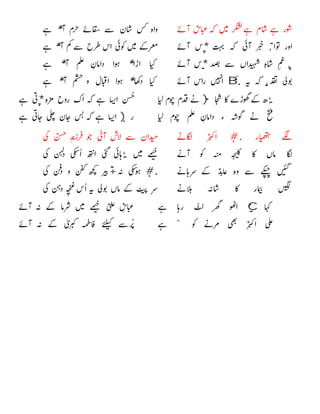 شور ہے شام ہے لشکر میں کہ عباسؑ آئے
واہ کس شان سے سقائے حرم آ* ہے
اور توا* خبر آئی کہ بہت *س آئے
معرکے میں کوئی اس طرح سے کم آ* ہے
غمِ شاہِ شہیداں سے بصد *س آئے
کیا اڑا* ہوا دامانِ علم آ* ہے
بولی تقدیر کہ یہ B. انہیں راس آئے
کیا دکھا* ہوا اقبال و حشم آ* ہے
بڑھ کے گھوڑے کا شجا { نے قدم چوم لیا
حُسن ایسا ہے کہ اک روح مزہ *تی ہے
فتح نے گوشہء دامانِ علم چوم لیا
ر ) ایسا ہے کہ بس جان چلی جاتی ہے
لگے ہتھیار #. اکبرؑ لگانے
میدان سے لاش آئی جو فرزندِ حسنؑ کی
لگا ماں کا کلیجہ منہ کو آنے
خیمے میں *ہائی گئی اُسکی دُلہن کی
گئیں چپکے سے وہ عابدؑ کے سرہانے
#. ہوسکی نہ + بیر کچھ کفن و دفن کی
لگیں بیمار کا شانہ ہلانے
سر پیٹ کے ماں بولی یہ اُس غنچہ دہن کی
کہا C اٹھو گھر لٹ رہا ہے
عباسِ علیؑ خیمے میں شرما کے نہ آئے
علی اکبرؑ بھی مرنے کو * ہے
پُرسے کو فاطمہ کبریٰؑ کے نہ آئے